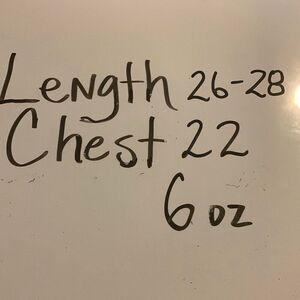 Length 26-28
Chest 22
6 oz